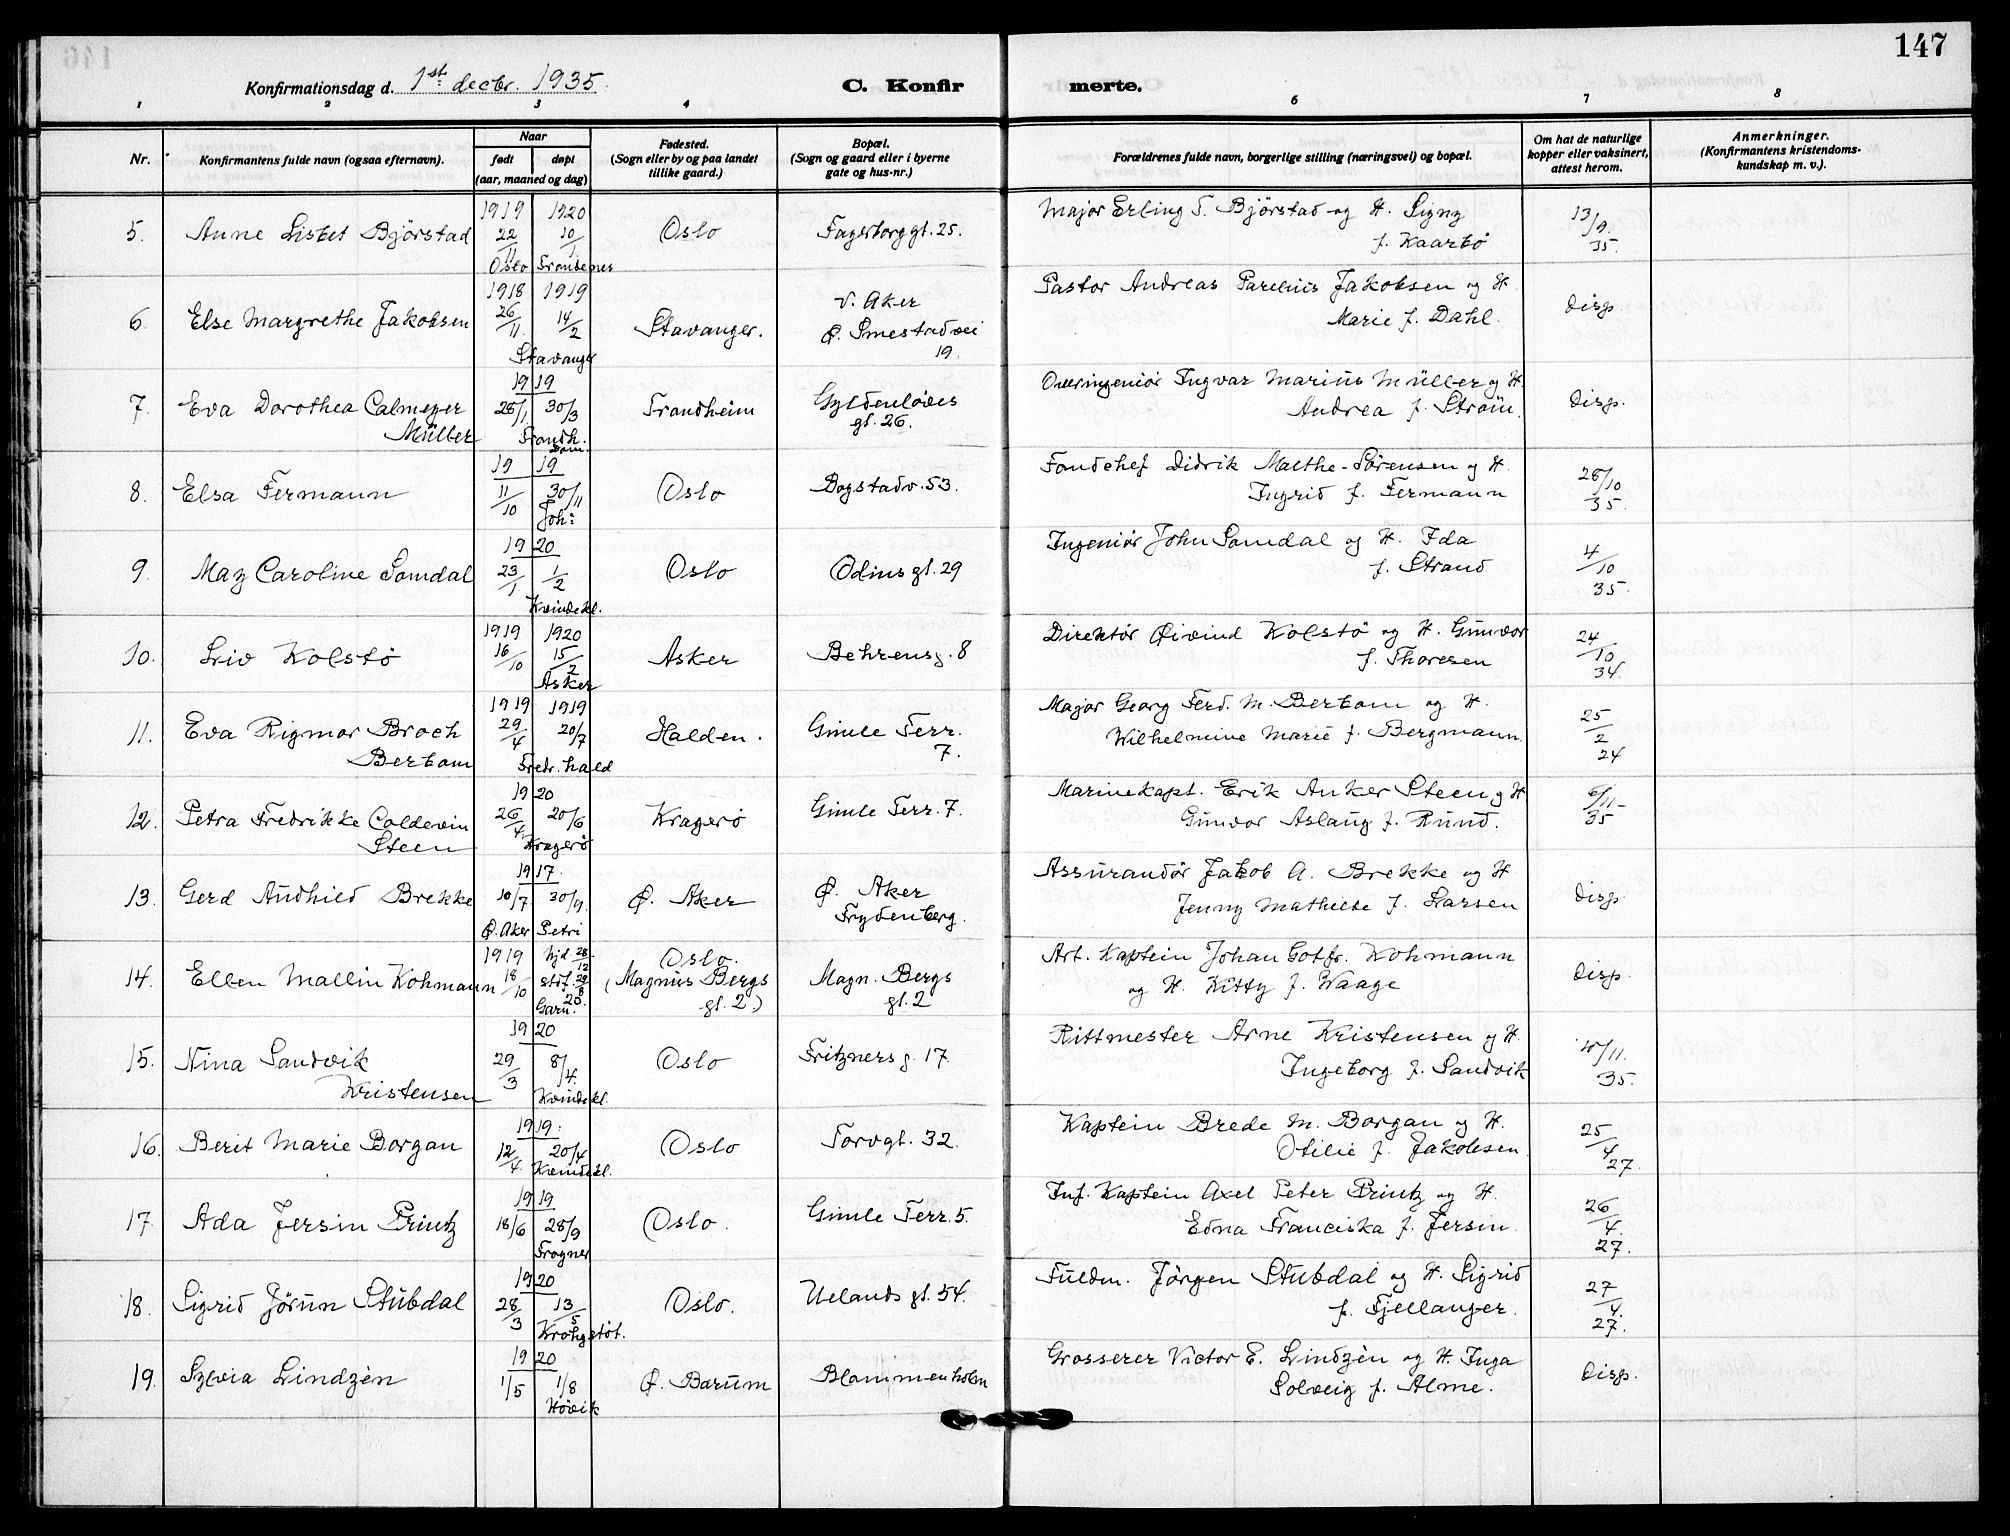 147
Konfirmationsdag d. 1st decbr. 1935.
C. Konfir
merte.
1 2 3 4 6 7 8
Nr.
Konfirmantens fulde navn (ogsaa efternavn).
Naar
født døpt
(aar, maaned og dag)
Fødested.
(Sogn eller by og paa landet
tillike gaard.)
Bopæl.
(Sogn og gaard eller i byerne
gate og hus-nr.)
Forældrenes fulde navn, borgerlige stilling (næringsvei) og bopæl.
Om hat de naturlige
kopper eller vaksinert,
attest herom.
Anmerkninger.
(Konfirmantens kristendoms-
kundskap m. v.).
5. Anne Lisbet Bjørstad 1919 22/11 Oslo 1920 10/1 Frondenes Oslo Fagerborggt. 25. Major Erling T. Bjørstad og H. Signy
f. Kaarbø 13/9. 35.
6. Else Margrethe Jakobsen 1918 26/11. 1919 14/2 Stavanger Stavanger. V. Aker
Ø. Smestadvei
19. Pastor Andreas Parelius Jakobsen og H.
Marie f. Dahl. Disp.
7. Eva Dorothea Calmeyer
Müller 1919 28/1. 30/3 Trondh. Dom. Trondheim Gyldenløves
gt. 26. Overingeniør Ingvar Marius Müller og H.
Andrea f. Strøm. Disp.
8. Elsa Fermann 1919 11/10 30/11 Joh: Oslo Bogstadv. 53. Fondchef Didrik Malthe-Sørensen og H.
Ingrid f. Fermann 28/10 35.
9. May Caroline Somdal 1920 23/1 1/2 Kvindekl. Oslo Odins gt. 29 Ingeniør John Somdal og H. Ida
f. Strand 4/10 35.
10. Liv Kolstø 1919 16/10 1920 15/2 Asker Asker Behrensg. 8 Direktør Øivind Kolstø og H. Gunvor
f. Thoresen 24/10 34.
11. Eva Rigmor Broch
Bertom 1919 29/4 1919 20/7 Fredr.hald Halden. Gimle Terr.
7. Major Georg Ferd. M. Bertom og H.
Wilhelmine Marie f. Bergmann. 25/2 24
12. Petra Fredrikke Coldevin
Steen 1920 26/4. 20/6 Kragerø Kragerø Gimle Terr. 7. Marinekapt. Erik Anker Steen og H
Gunvor Aslaug f. Rund. 6/11- 35
13. Gerd Audhild Brekke 1917. 10/7 30/9. Ø. Aker Petri Ø. Aker Ø. Aker
Frydenberg. Assurandør Jakob A. Brekke og H
Jenny Mathilde f. Larsen Disp.
14. Ellen Mallin Kohmann 1919 18/10 hjd. 28/12 stf. 29/8 20. Garn. Oslo.
(Magnus Bergs
gt. 2.) Magn. Bergs
gt. 2 Art. Kaptein Johan Gotfr. Kohmann
og H. Kitty f. Waage Disp.
15. Nina Sandvik
Kristensen 1920 29/3 8/4. Kvindekl. Oslo Fritzners g. 17. Rittmester Arne Kristensen og H.
Ingeborg f. Sandvik 11. 35.
16. Berit Marie Borgan 1919. 12/4. 20/4 Kvindekl. Oslo Torvgt. 32. Kaptein Brede M. Borgan og H.
Otilie f. Jakobsen. 25/4 27.
17. Ada Jersin Printz 1919 18/6 28/9 Frogner Oslo. Gimle Terr. 5. Inf. Kaptein Axel Peter Printz og H.
Edna Franciska f. Jersin. 26/4. 27.
18. Sigrid Jorun Stubdal 1920 28/3 13/5 Krohgstøt. Oslo. Uelands gt. 54. Fuldm. Jørgen Stubdal og H. Sigrid
f. Fjellanger. 27/4. 27.
19. Sylvia Lindzén 1920 1/5 1/8 Høvik Ø. Bærum Blommenholm Grosserer Victor E. Lindzén og H. Inga
Solveig f. Alme. Disp.